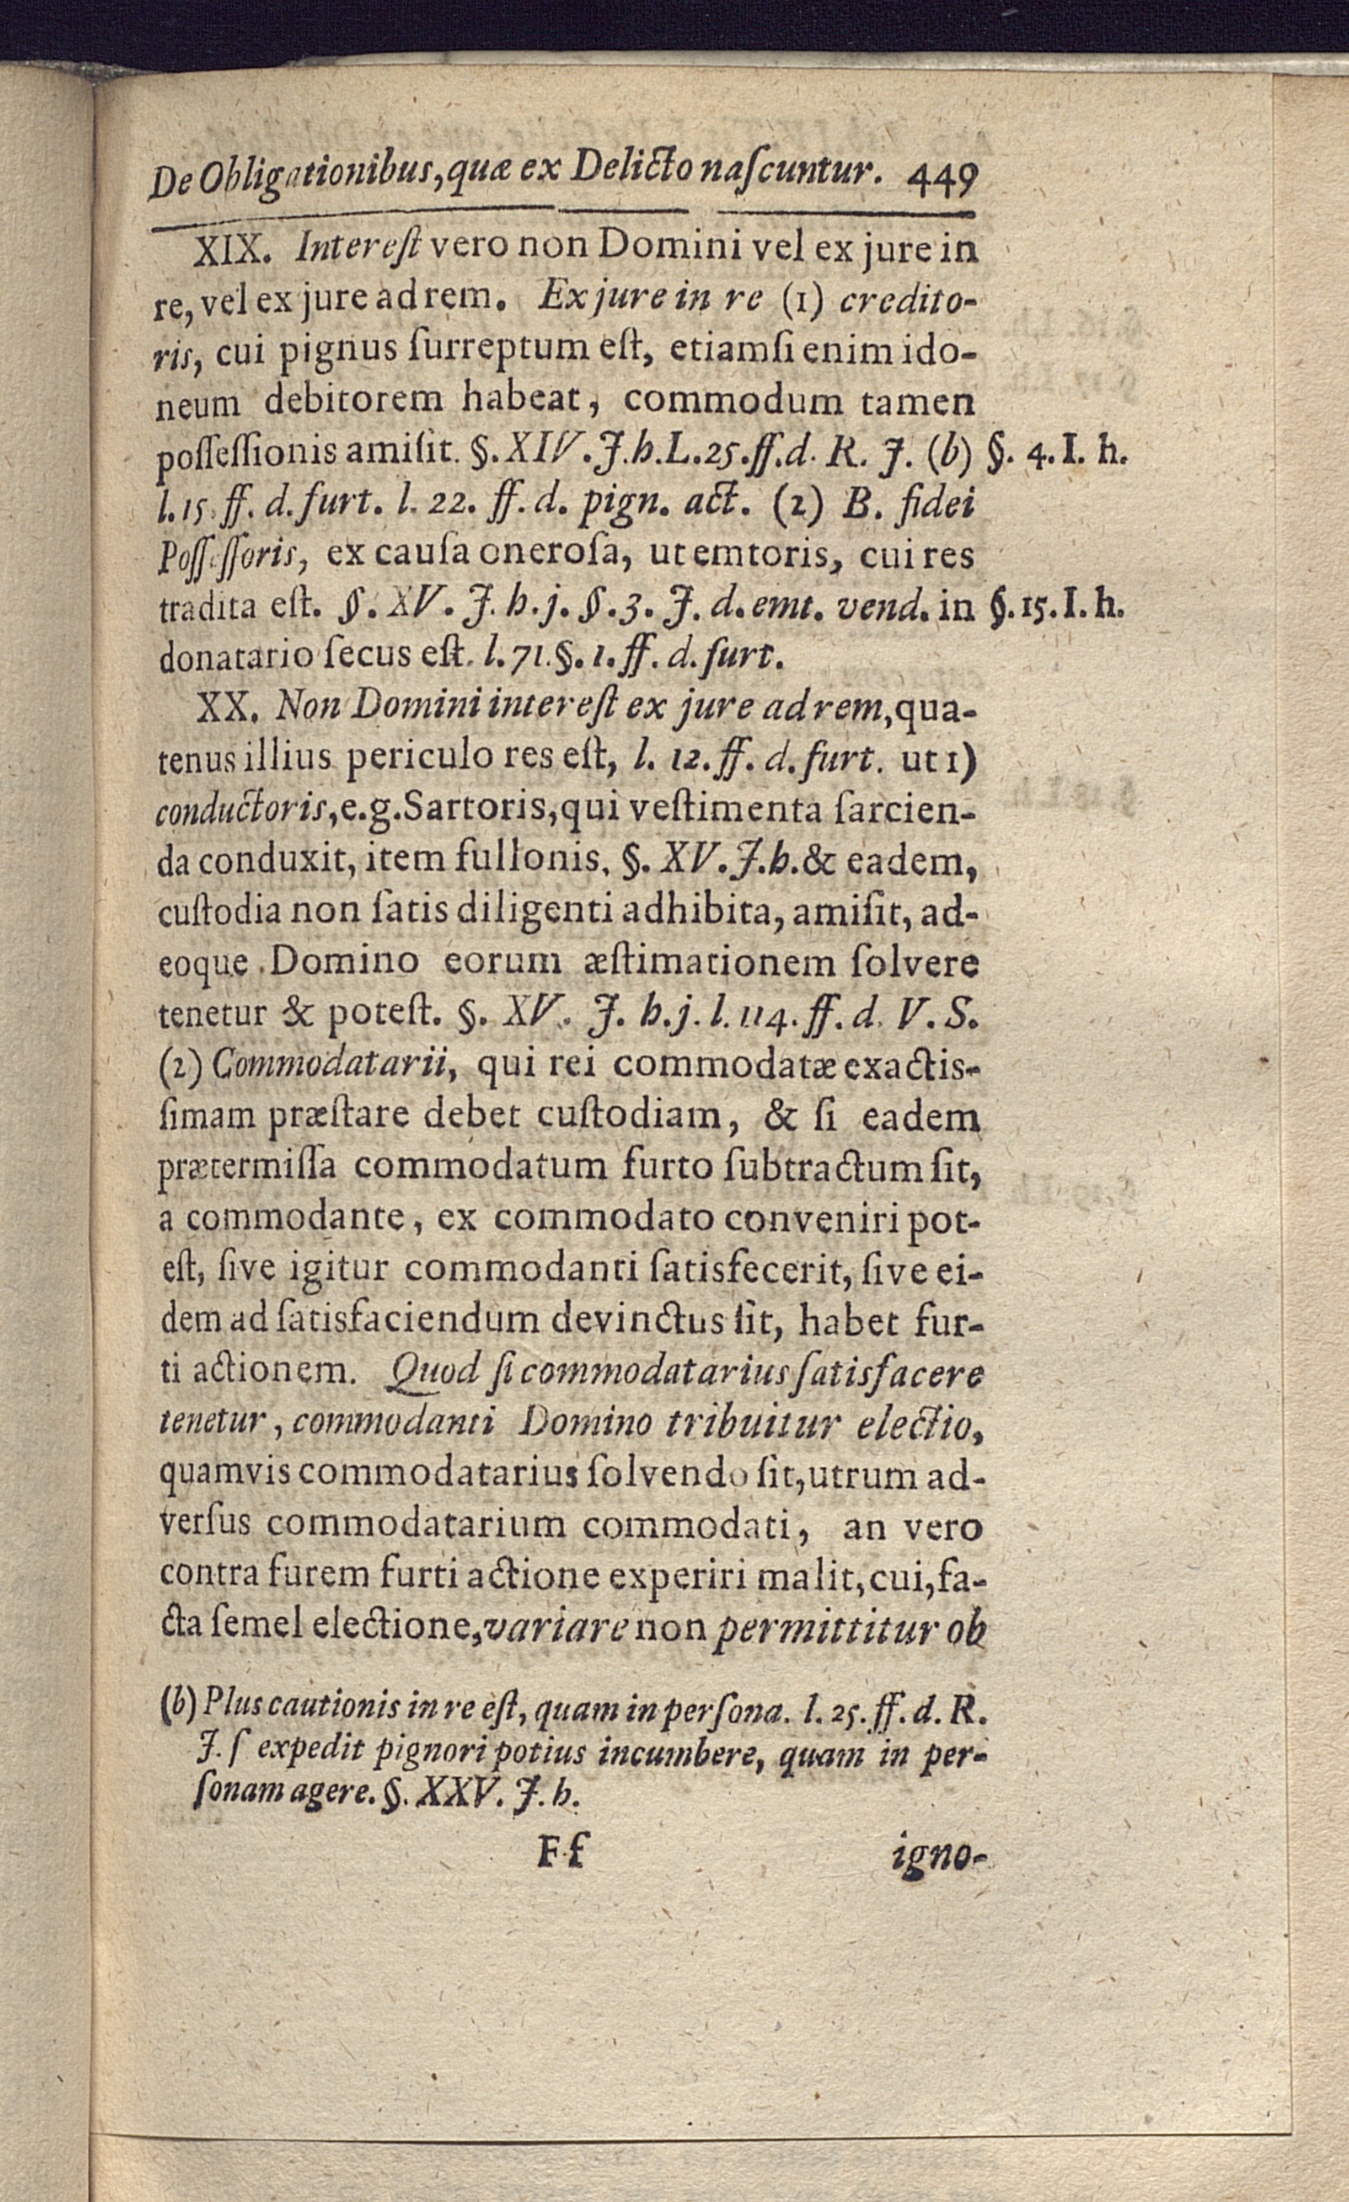 De Obligationibus, quæ ex Delicto naſcuntur. 449
XIX. Intereſt vero non Domini vel ex jure in
re, vel ex jure ad rem. Ex jure in re (1) credito-
ris, cui pignus ſurreptum eſt, etiamſi enim ido-
neum debitorem habeat, commodum tamen
poſſeſſionis amiſit. §. XIV. J. h. L. 25. ff. d. R. J. (b) §. 4. I. h.
l. 15 ff. d. furt. l. 22. ff. d. pign. act. (2) B. fidei
Poſſeſſoris, ex cauſa oneroſa, ut emtoris, cui res
tradita eſt. §. XV. J. h. j. §. 3. J. d. emt. vend. in §. 15. I. h.
donatario ſecus eſt. l. 71. §. 1. ff. d. furt.
XX. Non Domini intereſt ex jure ad rem, qua-
tenus illius periculo res eſt, l. 12. ff. d. furt. ut 1)
conductoris, e. g. Sartoris, qui veſtimenta ſarcien-
da conduxit, item fullonis, §. XV. J. h. & eadem,
cuſtodia non ſatis diligenti adhibita, amiſit, ad-
eoque Domino eorum æſtimationem ſolvere
tenetur & poteſt. §. XV. J. h. j. l. 114. ff. d. V. S.
(2) Commodatarii, qui rei commodatæ exactis-
ſimam præſtare debet cuſtodiam, & ſi eadem
prætermiſſa commodatum furto ſubtractum ſit,
a commodante, ex commodato conveniri pot-
eſt, ſive igitur commodanti ſatisfecerit, ſive ei-
dem ad ſatisfaciendum devinctus ſit, habet fur-
ti actionem. Quod ſi commodatarius ſatisfacere
tenetur, commodanti Domino tribuitur electio,
quamvis commodatarius ſolvendo ſit, utrum ad-
verſus commodatarium commodati, an vero
contra furem furti actione experiri malit, cui, fa-
cta ſemel electione, variare non permittitur ob
(b) Plus cautionis in re eſt, quam in perſona. l. 25. ff. d. R.
J. ſ expedit pignori potius incumbere, quam in per-
ſonam agere. §. XXV. J. h.
F f igno-